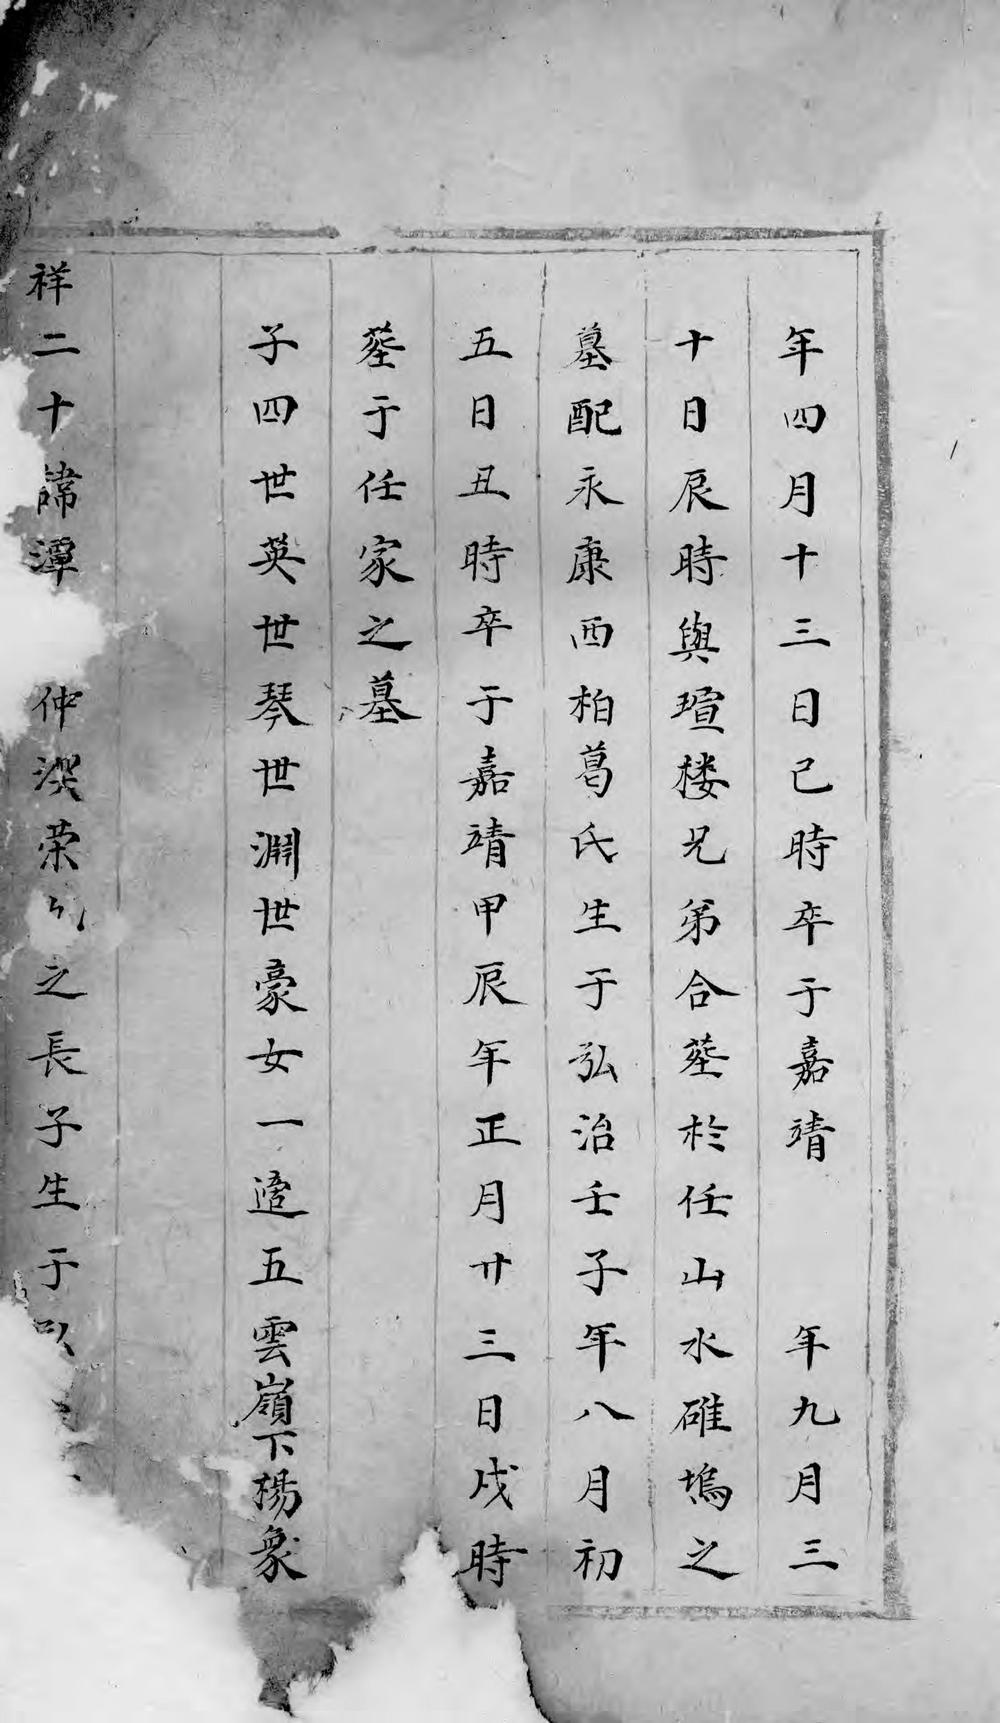 年四月十三日巳時卒于嘉靖　年九月三
十日辰時與瑄楼兄弟合塟於任山水碓塢之
墓配永康西柏葛氏生于弘治壬子年八月初
五日丑時卒于嘉靖甲辰年正月廿三日戌時
塟于任家之墓
子四世英世琴世淵世豪女一適五雲嶺下楊衆
祥二十諱潭仲渓荣之長子生于